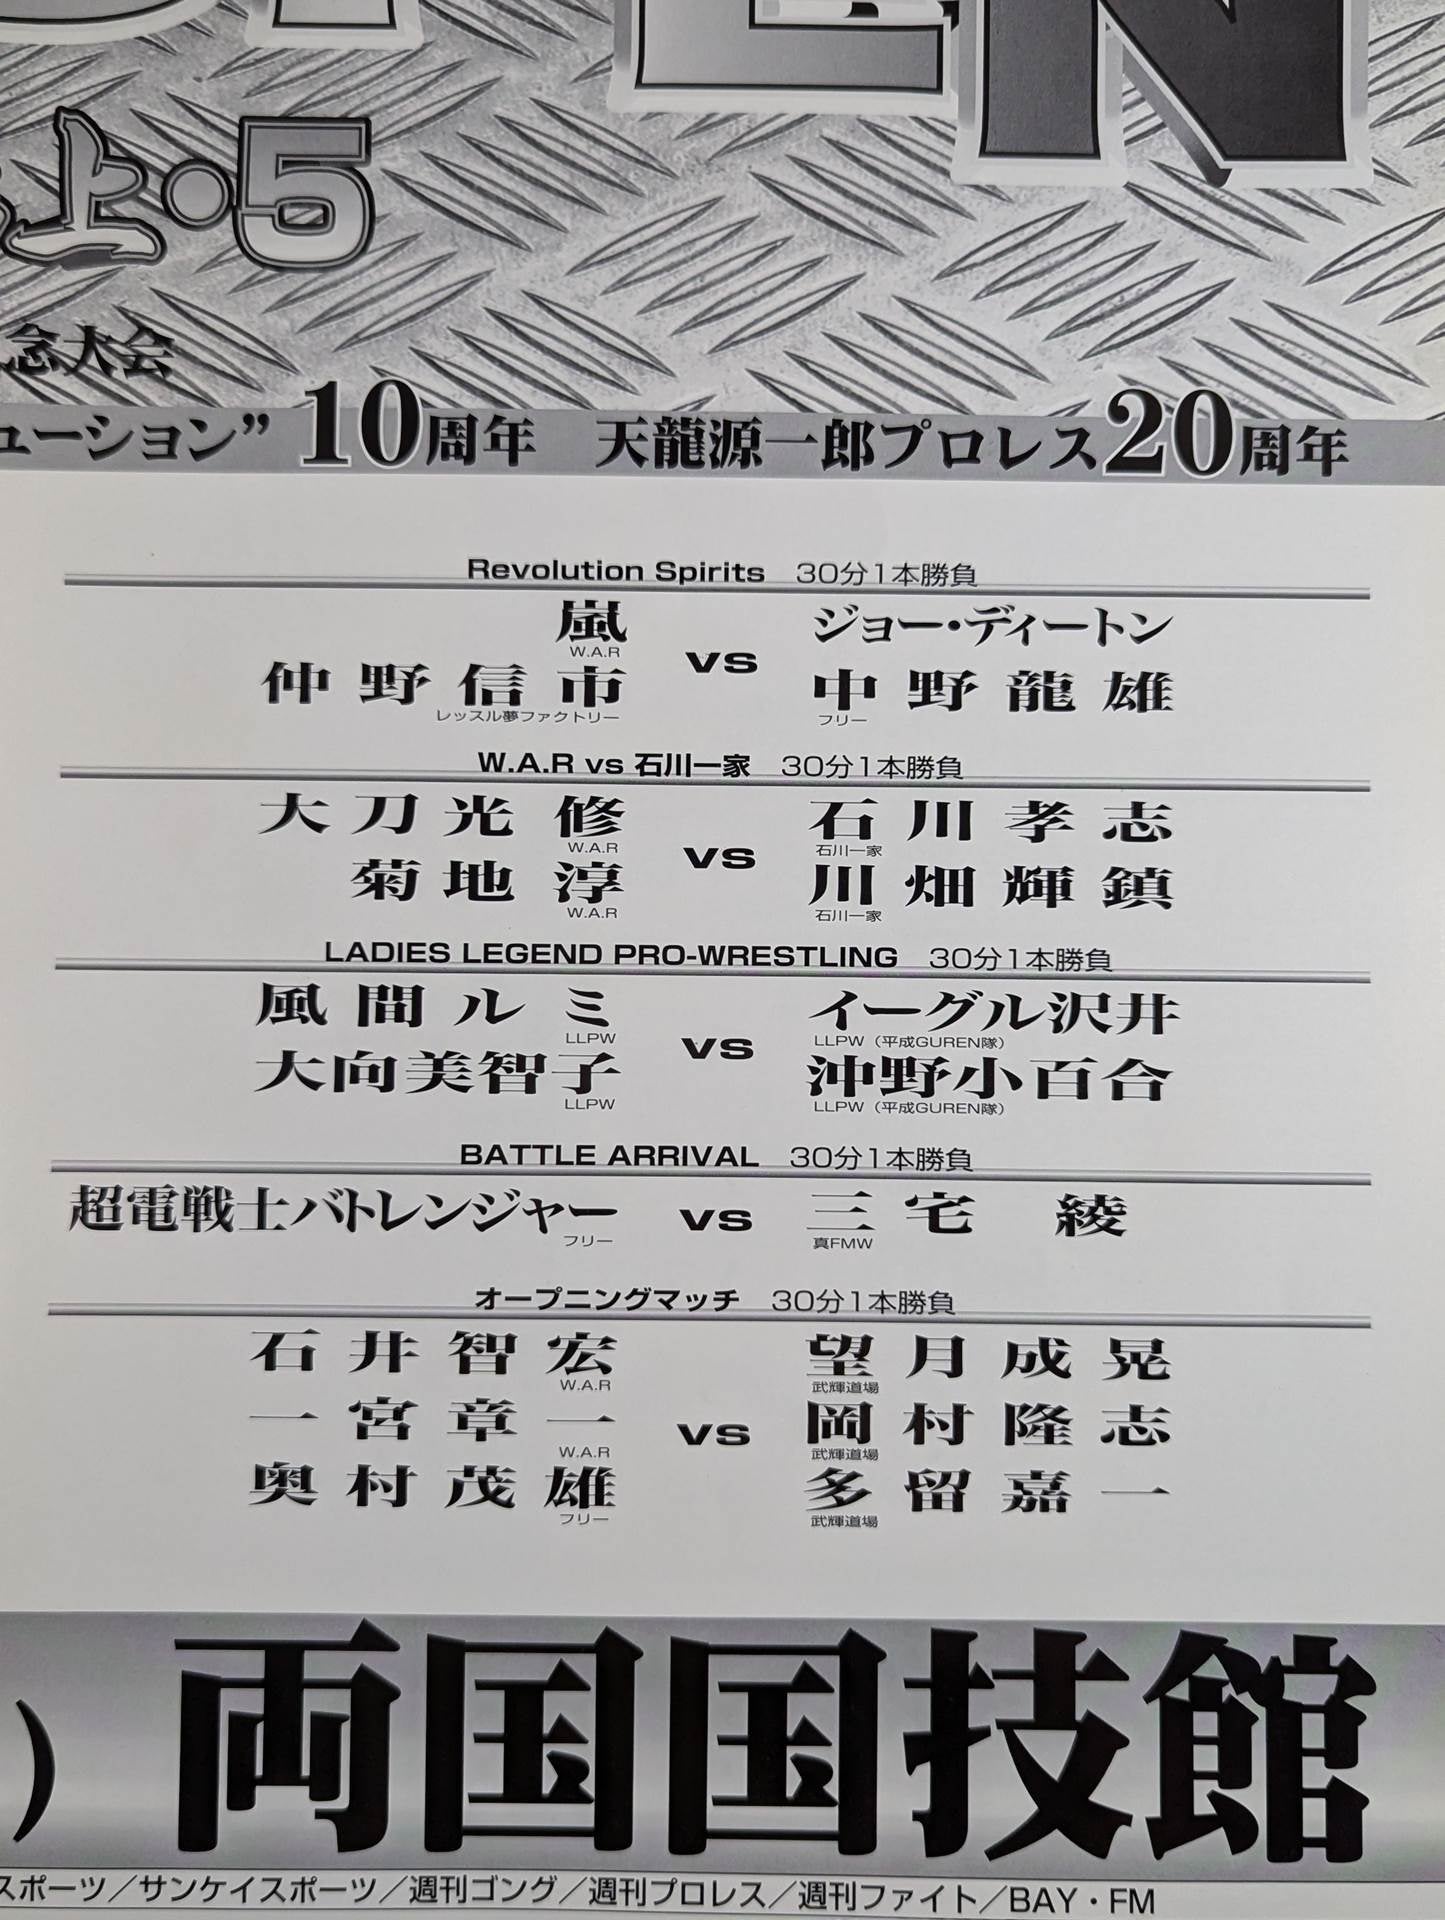 EN
上・5
念大会
ューション” 10周年　天龍源一郎プロレス20周年
Revolution Spirits　30分1本勝負
嵐
W.A.R
仲野信市
レッスル夢ファクトリー
vs
ジョー・ディートン
中野龍雄
フリー
W.A.R vs 石川一家　30分1本勝負
大刀光修
W.A.R
菊地淳
W.A.R
vs
石川孝志
石川一家
川畑輝鎮
石川一家
LADIES LEGEND PRO-WRESTLING　30分1本勝負
風間ルミ
LLPW
大向美智子
LLPW
vs
イーグル沢井
LLPW（平成GUREN隊）
沖野小百合
LLPW（平成GUREN隊）
BATTLE ARRIVAL　30分1本勝負
超電戦士バトレンジャー
フリー
vs
三宅綾
真FMW
オープニングマッチ　30分1本勝負
石井智宏
W.A.R
一宮章一
W.A.R
奥村茂雄
フリー
vs
望月成晃
武輝道場
岡村隆志
武輝道場
多留嘉一
武輝道場
）両国国技館
スポーツ／サンケイスポーツ／週刊ゴング／週刊プロレス／週刊ファイト／BAY・FM